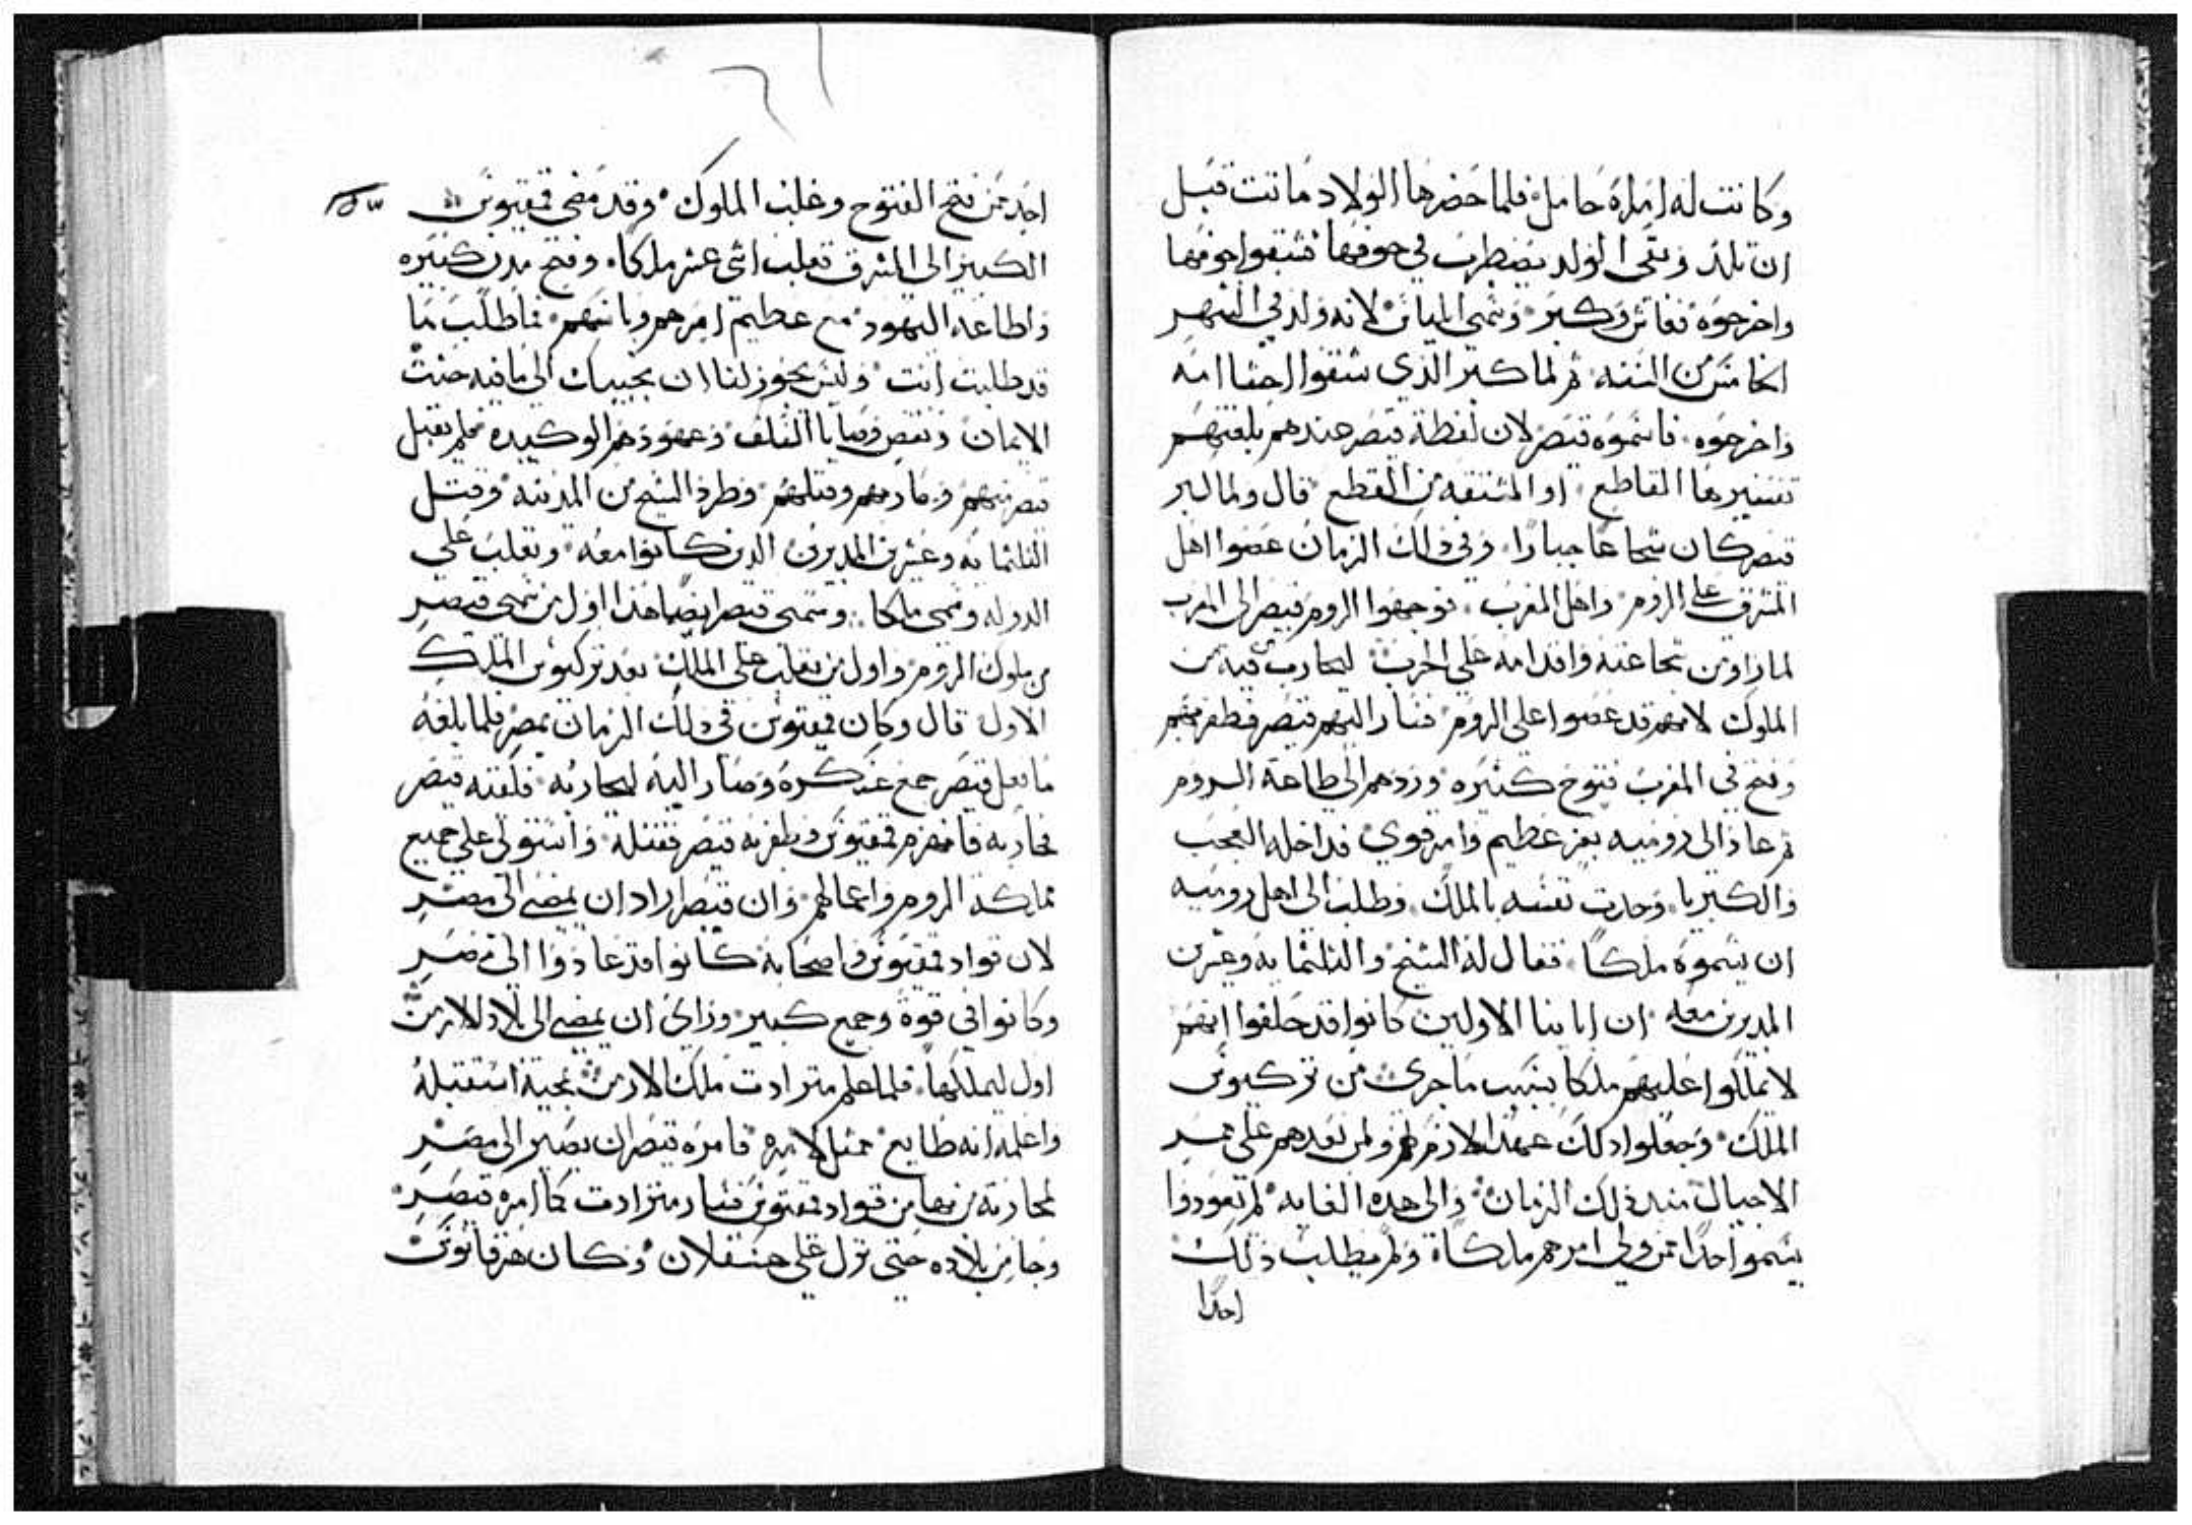 وكانت له امراة حامل فلما حضرها الولاد ماتت قبل
ان تلد وبقى الولد يضطرب في جوفها فشقوا جوفها
واخرجوه فعاش وكبر وسمي لانه ولد في الشهر
الخامس من السنه ثم لما كبر الذي شقوا احشا امه
واخرجوه فاسموه قيصر لان لفظة قيصر عندهم بلغتهم
تفسيرها القاطع او المشتقه من القطع قال ولما كبر
قيصر كان شجاعا جبارا وفي ذلك الزمان عصوا اهل
المشرق على الروم واهل المغرب فوجهوا الروم قيصر الى المغرب
لما راو من شجاعته واقدامه على الحرب ليحارب من فيه من
الملوك لانهم قد عصوا على الروم فسار اليهم قيصر فظفر بهم
وفتح في المغرب فتوح كثيره وردهم الى طاعة الروم
ثم عاد الى روميه بعز عظيم وامر قوي فداخله العجب
والكبريا وحدت نفسه بالملك وطلب الى اهل روميه
ان يسموه ملكا فقال له الشيخ والثلثمايه وعشرين
المدبرين معه ان ابا ينا الاولين كانوا قد حلفوا انهم
لا يملكوا عليهم ملكا بسبب ما جرى من تركيوس
الملك وجعلوا ذلك عهدا لازم لهم ولمن بعدهم على ممر
الاجيال منذ ذلك الزمان والى هذه الغايه لم تعودوا
يسموا احدا ممن ولي امرهم ملكا ولم يطلب ذلك
احدا
احد ممن فتح الفتوح وغلب الملوك وقد مضى فمقيوس
الكبير الى المشرق فغلب اثنى عشر ملكا وفتح مدن كثيره
واطاعه اليهود مع عظيم امرهم وباسهم فما طلب ما
قد طلبت انت وليس يجوز لنا ان نجيبك الى ما فيه حنث
الايمان ونقض وصايا السلف وعهودهم الوكيده فلم يقبل
قيصر منهم وحاربهم وقتلهم وطرد الشيخ من المدينه وقتل
الثلثمايه وعشرين المدبرين الذين كانوا معه وتغلب على
الدوله وسمي ملكا وسمي قيصر ايضا هذا اول من سمي قيصر
من ملوك الروم واول من تغلب على الملك بعد تركيوس الملك
الاول قال وكان فمقيوس في ذلك الزمان بمصر فلما بلغه
ما فعل قيصر جمع عسكره وصار اليه ليحاربه فلقيه قيصر
فحاربه فانهزم فمقيوس وظفر به قيصر فقتله واستولى على جميع
مملكة الروم واعمالهم وان قيصر اراد ان يمضي الى مصر
لان قواد فمقيوس واصحابه كانوا قد عادوا الى مصر
وكانوا في قوة وجمع كبير وراى ان يمضي الى بلاد الارمن
اول ليملكها فلما علم متراداث ملك الارمن بمجيه استقبله
واعلمه انه طايع ممتثل لامره فامره قيصر ان يصير الى مصر
لمحاربة من بها من قواد فمقيوس فسار متراداث كما امره قيصر
وجا من بلاده حتى نزل على عسقلان وكان هرقانوس